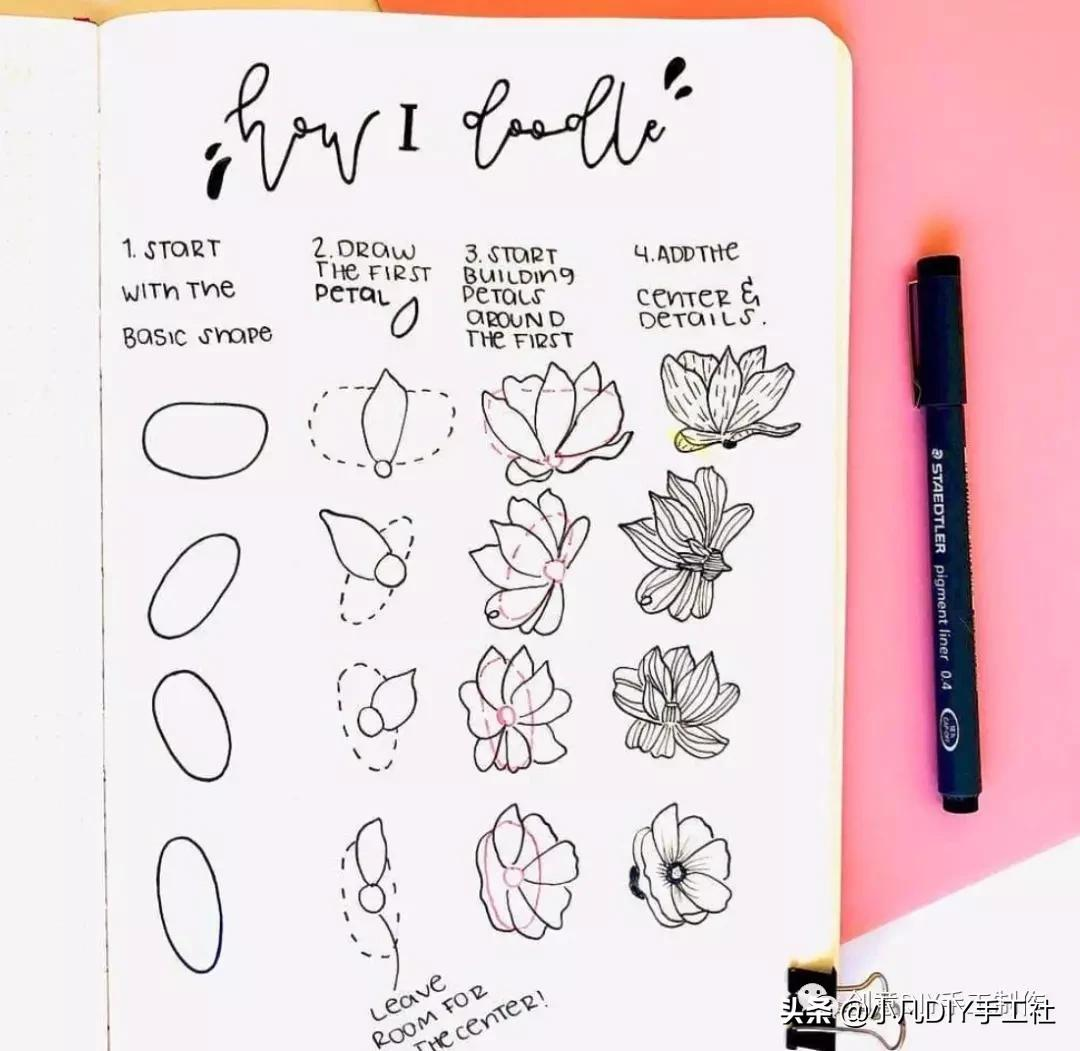 how I doodle
1. START
WITH THE
BASIC SHAPE
2. DRAW
THE FIRST
PETAL
3. START
BUILDING
PETALS
AROUND
THE FIRST
4. ADD THE
CENTER &
DETAILS.
LEAVE
ROOM FOR
THE CENTER!
STAEDTLER pigment liner 0.4
创意DIY手工制作
头条 @小凡DIY手工社